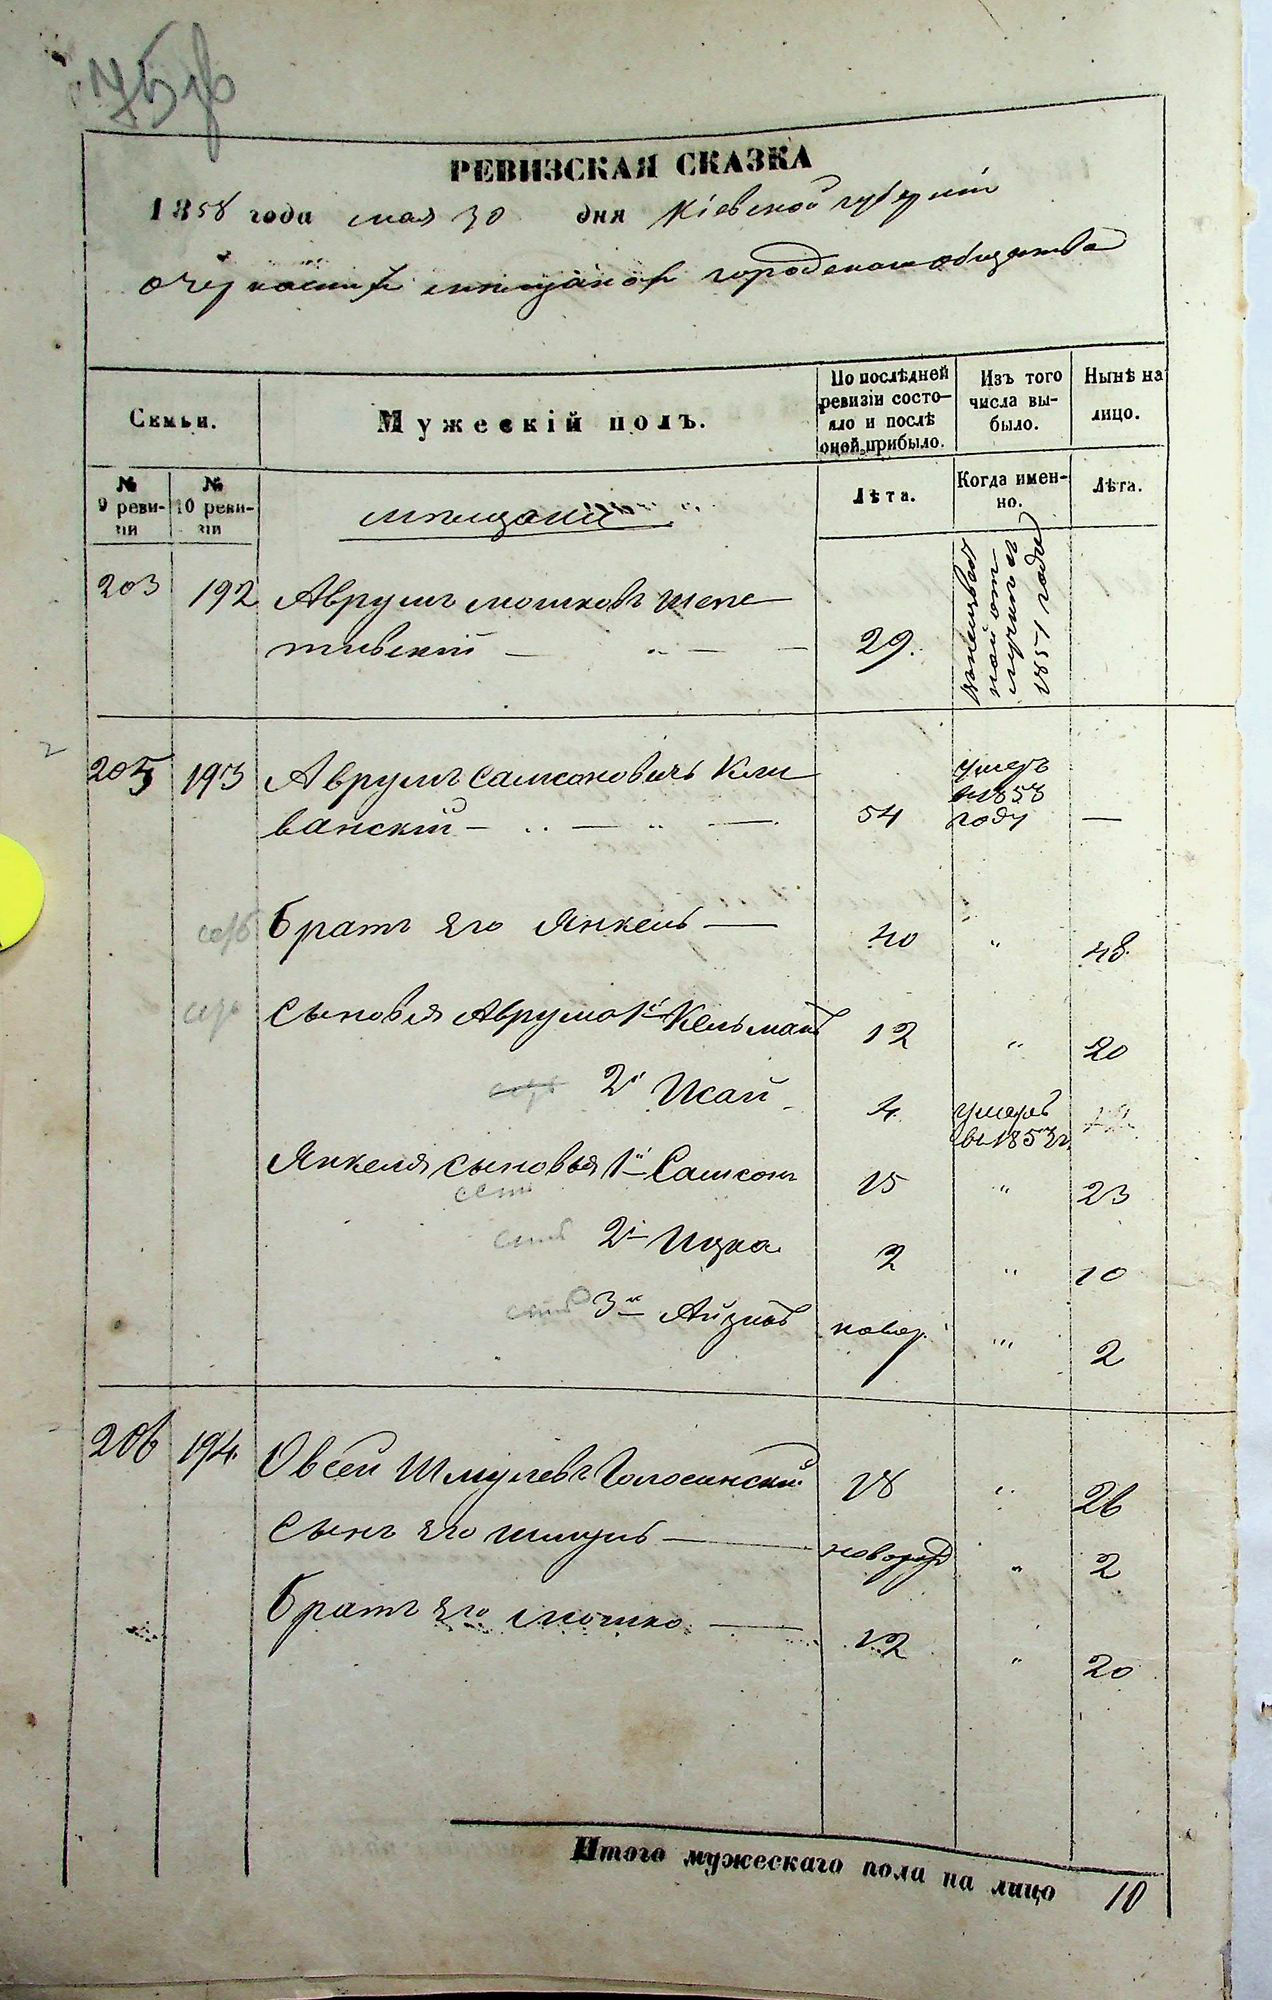 РЕВИЗСКАЯ СКАЗКА
1858 года мая 30 дня Кіевской губерніи
мещанов городскаго общества
Семьи.
Мужескій полъ.
По послѣдней ревизіи состояло и послѣ оной прибыло.
Изъ того числа выбыло.
Нынѣ на лицо.
№ 9 ревизіи
№ 10 ревизіи
мещане
Лѣта.
Когда именно.
Лѣта.
203 192 Аврумъ Мошковъ Шепе
тивскій — " — — 29.
1851 года
205 193 Аврумъ Самсоновичъ Кли
ванскій — " — " — 54 умеръ в 1858 году —
Братъ Его Янкель — 40 " 48
Сыновья Аврума 1й Кельманъ 12 " 20
2й Исай 4 умеръ в 1853 г.
Янкеля сыновья 1й Самсонъ 15 " 23
2й Ицка 2 " 10
3й Айзикъ новор. " 2
206 194. Овсей Шмулевъ Голосинскій 18 " 26
Сынъ Его Шмуль — новорож " 2
Братъ Его Мошко — 12 " 20
Итого мужескаго пола на лицо 10